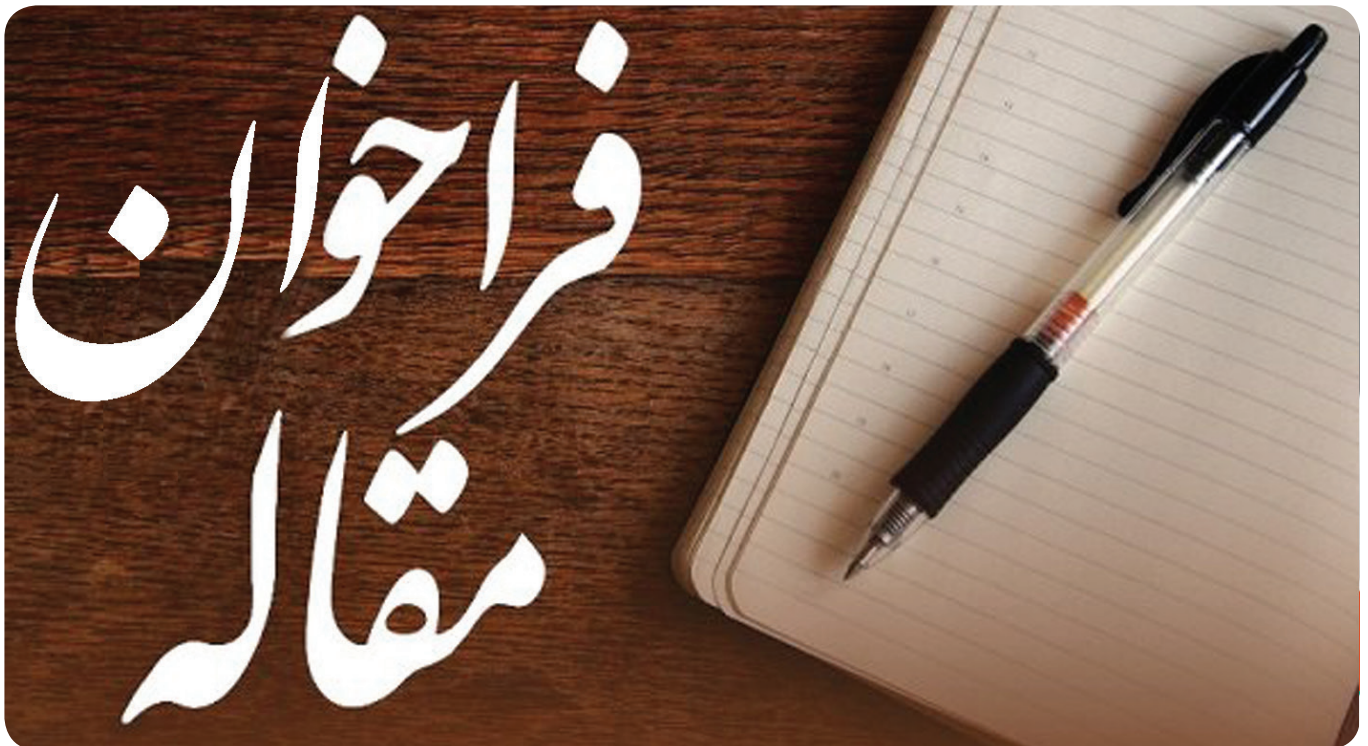 فراخوان
مقاله